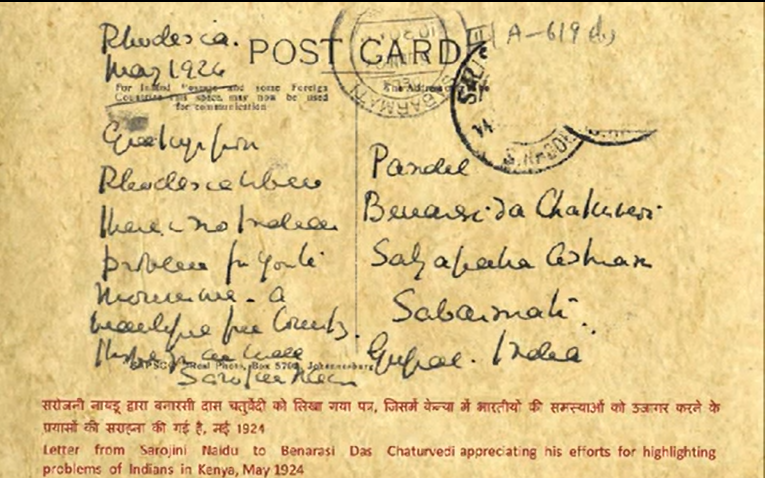 Rhodesia.
May 1924
POST CARD
A-619
For Inland Postage and some Foreign
Countries this space may now be used
for communication
The Address
SABARMATI
Greetings from
Rhodesia where
there is no Indian
problem for you to
- a
beautiful free country.
Hope you are well
Sarojini Naidu
SAPSCO Real Photo, Box 5700, Johannesburg
Pandit
Benarsi das Chaturvedi
Satyagraha Ashram
Sabarmati
Gujrat. India
सरोजनी नायडू द्वारा बनारसी दास चतुर्वेदी को लिखा गया पत्र, जिसमें केन्या में भारतीयों की समस्याओं को उजागर करने के
प्रयासों की सराहना की गई है, मई 1924
Letter from Sarojini Naidu to Benarasi Das Chaturvedi appreciating his efforts for highlighting
problems of Indians in Kenya, May 1924